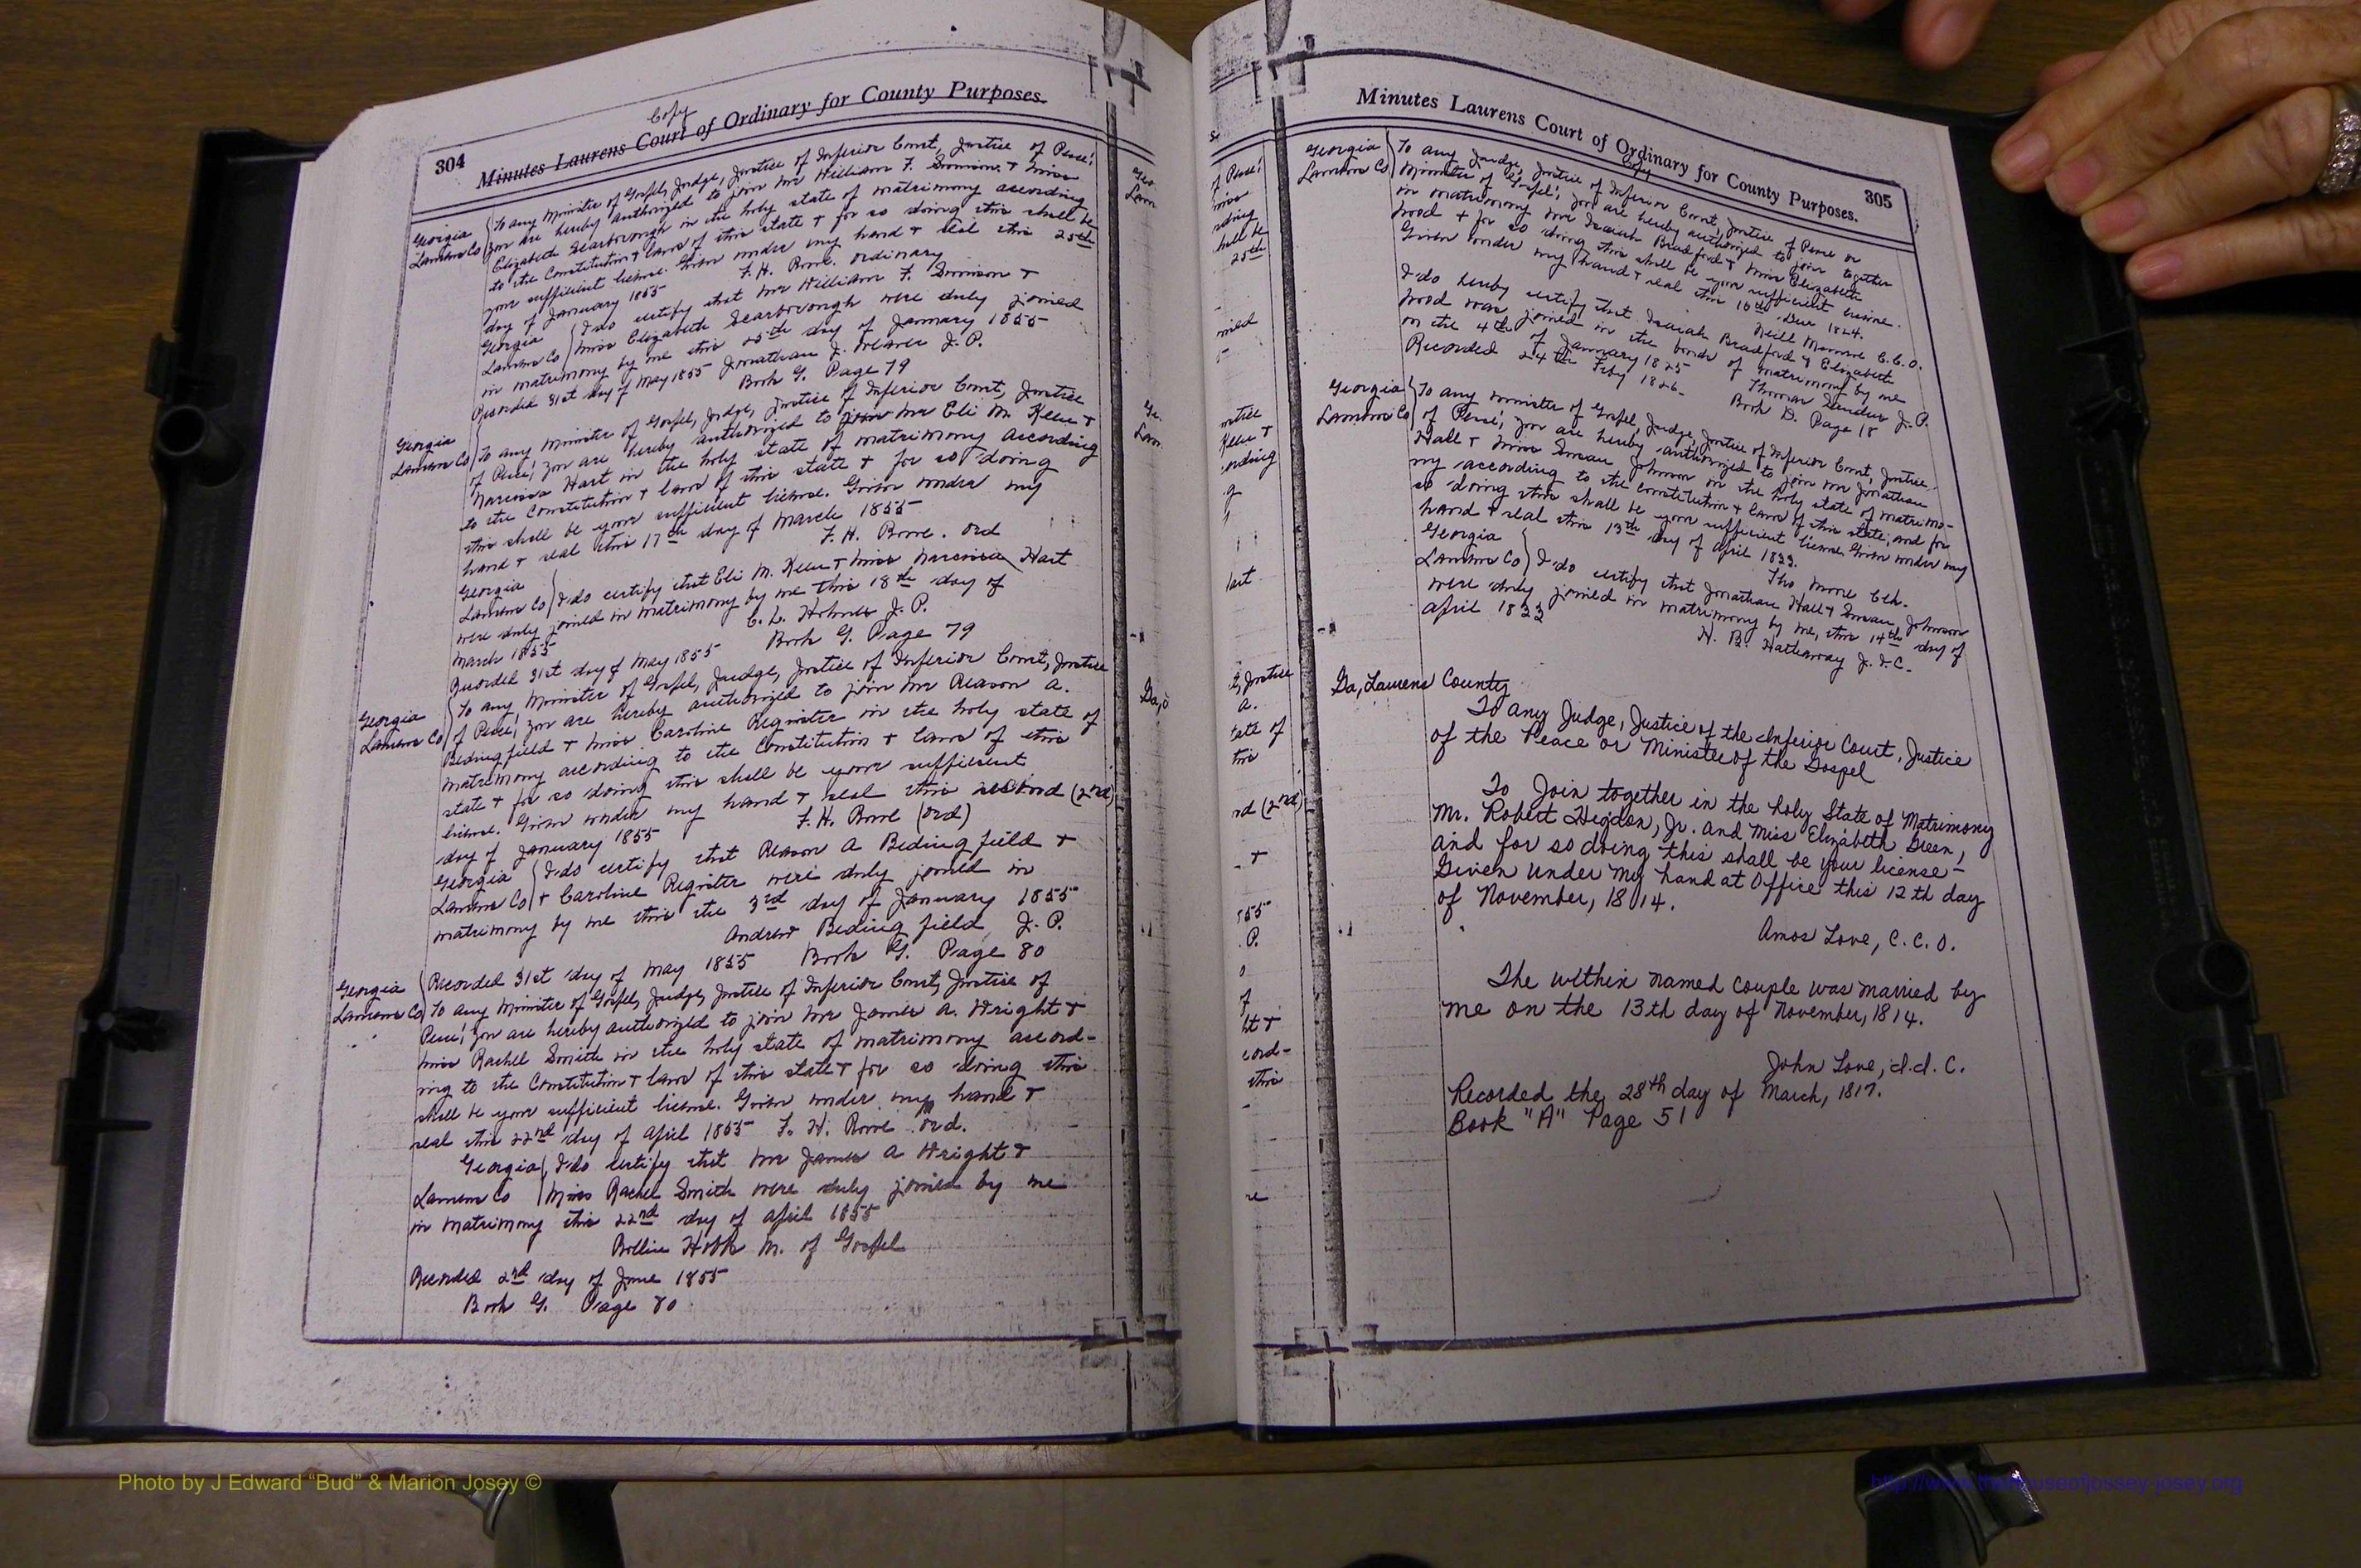 Copy
304 Minutes Laurens Court of Ordinary for County Purposes.
Georgia
Laurens Co
To any Minister of Gospel, Judge, Justice of Inferior Court, Justice of Peace!
you are hereby authorized to join Mr William F. & Miss
Elizabeth Scarborough in the holy state of matrimony according
to the Constitution & laws of this state & for so doing this shall be
your sufficient license. Given under my hand & seal this 25th
day of January 1855 F. H. Rowe. ordinary
Georgia
Laurens Co
I do certify that Mr William F. &
Miss Elizabeth Scarborough were duly joined
in matrimony by me this 25th day of January 1855
Jonathan J. Weaver J. P.
Recorded 31st day of May 1855 Book G. Page 79
Georgia
Laurens Co
To any Minister of Gospel, Judge, Justice of Inferior Court, Justice
of Peace! you are hereby authorized to join Mr Eli M. Keen &
Narcissa Hart in the holy state of matrimony according
to the Constitution & laws of this state & for so doing
this shall be your sufficient license. Given under my
hand & seal this 17th day of March 1855
F. H. Rowe. Ord
Georgia
Laurens Co
I do certify that Eli M. Keen & Miss Narcissa Hart
were duly joined in matrimony by me this 18th day of
March 1855 C. L. Holmes J. P.
Recorded 31st day of May 1855 Book G. Page 79
Georgia
Laurens Co
To any Minister of Gospel, Judge, Justice of Inferior Court, Justice
of Peace! you are hereby authorized to join Mr Reason A.
Bedingfield & Miss Caroline Register in the holy state of
matrimony according to the Constitution & laws of this
state & for so doing this shall be your sufficient
license. Given under my hand & seal this second (2nd)
day of January 1855 F. H. Rowe (Ord)
Georgia
Laurens Co
I do certify that Reason A Bedingfield &
& Caroline Register were duly joined in
matrimony by me this the 3rd day of January 1855
Andrew Bedingfield J. P.
Recorded 31st day of May 1855 Book G. Page 80
Georgia
Laurens Co
To any Minister of Gospel, Judge, Justice of Inferior Court, Justice of
Peace! you are hereby authorized to join Mr James A. Wright &
Miss Rachel Smith in the holy state of matrimony accord-
ing to the Constitution & laws of this state & for so doing this
shall be your sufficient license. Given under my hand &
seal this 22nd day of April 1855 F. H. Rowe Ord.
Georgia
Laurens Co
I do certify that Mr James A Wright &
Miss Rachel Smith were duly joined by me
in matrimony this 22nd day of April 1855
Hobb M. of Gospel
Recorded 2nd day of June 1855
Book G. Page 80
Minutes Laurens Court of Ordinary for County Purposes. 305
Copy
Georgia
Laurens Co.
To any Judge, Justice of Inferior Court, Justice of Peace or
Minister of Gospel! you are hereby authorized to join together
in matrimony Mr Isaiah Bradford & Miss Elizabeth
Wood & for so doing this shall be your sufficient license.
Given under my hand & seal this 16th Dec 1824.
Neill Munroe C.C.O.
I do hereby certify that Isaiah Bradford & Elizabeth
Wood was joined in the bonds of matrimony by me
on the 4th of January 1825 Thomas J. P.
Recorded 24th Feby 1826. Book D. Page 18
Georgia
Laurens Co
To any minister of Gospel, Judge, Justice of Inferior Court, Justice
of Peace! you are hereby authorized to join Mr Jonathan
Hall & Miss Susan Johnson in the holy state of matrimo-
ny according to the constitution & laws of this state, and for
so doing this shall be your sufficient license. Given under my
hand & seal this 13th day of April 1833.
Tho Moore Clk.
Georgia
Laurens Co
I do certify that Jonathan Hall & Susan Johnson
were duly joined in matrimony by me, this 14th day of
April 1833
H. B. Hathaway J. I. C.
Ga, Laurens County
To any Judge, Justice of the Inferior Court, Justice
of the Peace or Minister of the Gospel
To Join together in the holy State of Matrimony
Mr. Robert Higdon, Jr. and Miss Elizabeth Green,
and for so doing this shall be your license-
Given under my hand at Office this 12th day
of November, 1814.
Amos Love, C.C.O.
The within named couple was married by
me on the 13th day of November, 1814.
John Love, J.I.C.
Recorded the 28th day of March, 1817.
Book "A" Page 51
Photo by J Edward “Bud” & Marion Josey ©
http://www.thehouseofjossey-josey.org